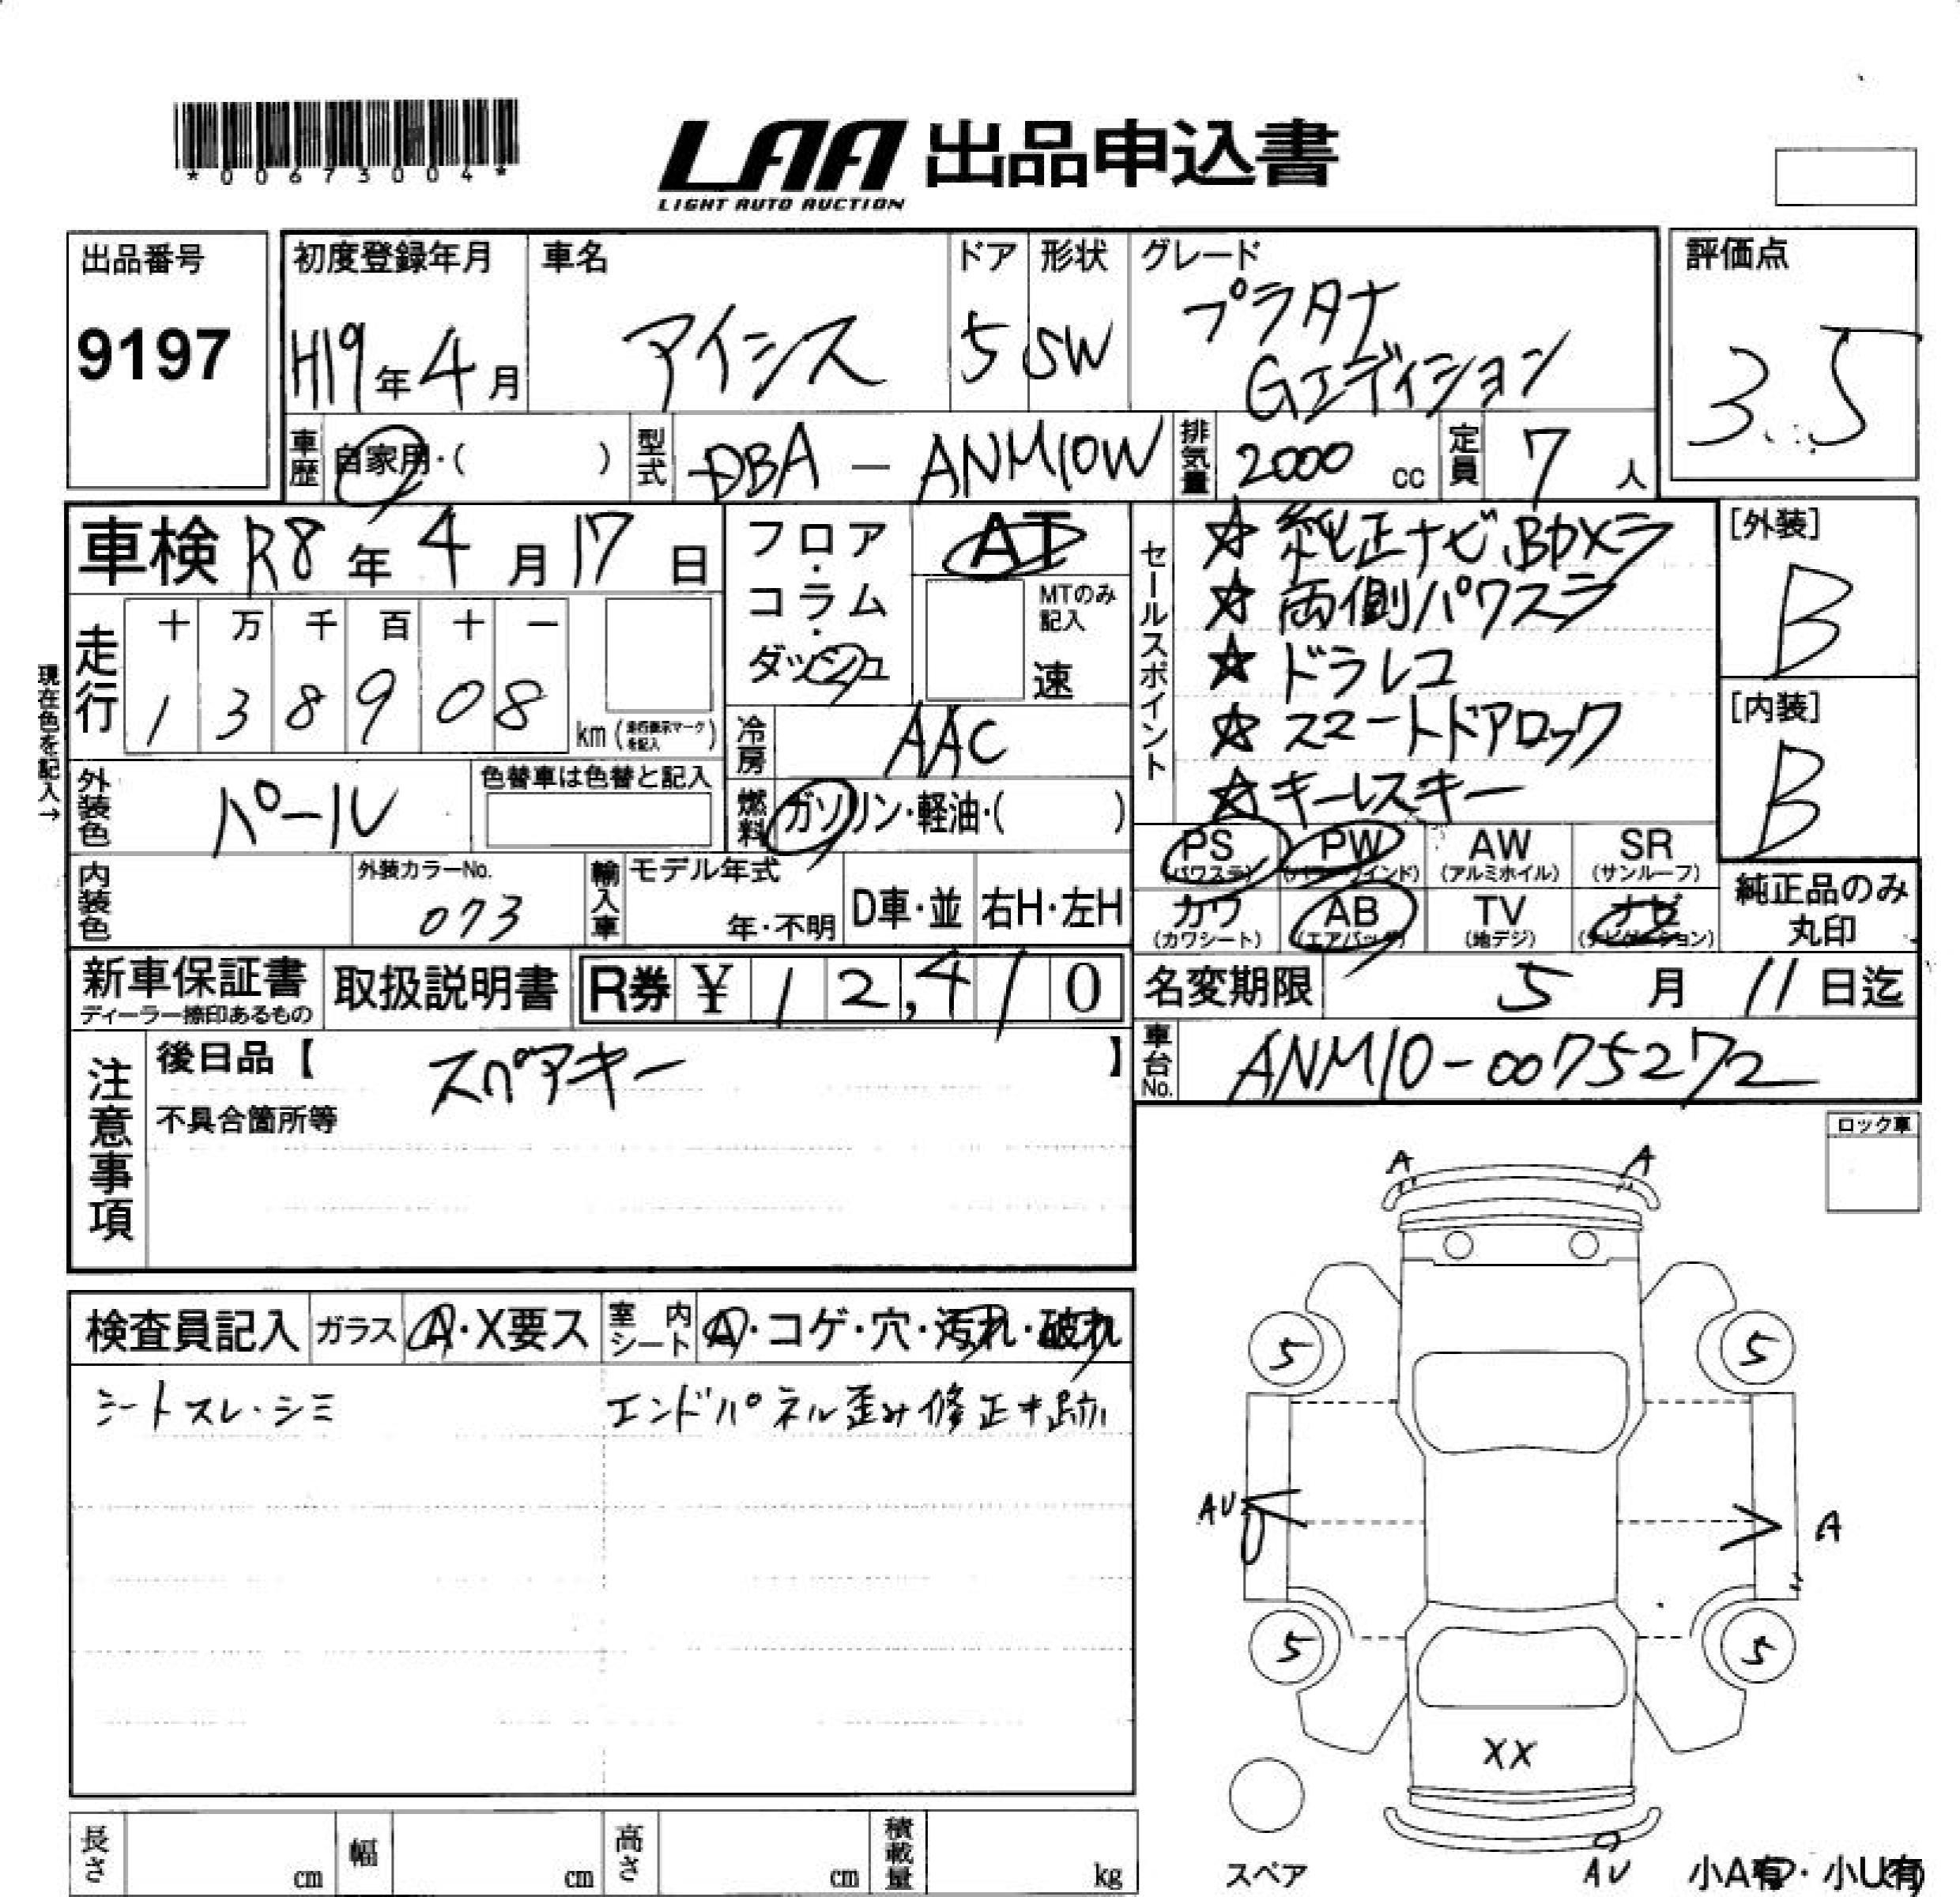 *00673004*
LAA 出品申込書
LIGHT AUTO AUCTION
出品番号
9197
初度登録年月
H19年4月
車名
アイシス
ドア
5
形状
SW
グレード
プラタナ
Gエディション
評価点
3.5
車歴
自家用・( )
型式
DBA - ANM10W
排気量
2000 cc
定員
7人
車検 R8年4月17日
走行
十 万 千 百 十 一
1 3 8 9 0 8
km(走行表示マークを記入)
現在色を記入→
フロア・コラム・ダッシュ
AT
MTのみ記入
速
冷房
AAC
燃料
ガソリン・軽油・( )
外装色
パール
色替車は色替と記入
内装色
外装カラーNo.
073
輸入車
モデル年式
年・不明
D車・並
右H・左H
セールスポイント
☆ 純正ナビ、Bカメラ
☆ 両側パワスラ
☆ ドラレコ
☆ スマートドアロック
☆ キーレスキー
[外装]
B
[内装]
B
PS (パワステ)
PW (パワーウインド)
AW (アルミホイル)
SR (サンルーフ)
カワ (カワシート)
AB (エアバッグ)
TV (地デジ)
ナビ (ナビゲーション)
純正品のみ丸印
新車保証書
ディーラー捺印あるもの
取扱説明書
R券 ¥12,410
名変期限 5月11日迄
車台No.
ANM10-0075272
注意事項
後日品【 スペアキー 】
不具合箇所等
ロック車
検査員記入
ガラス
A・X要ス
室内シート
A・コゲ・穴・汚れ・破れ
シートスレ・シミ
エンドパネル歪み修正キ跡
A
A
5
5
AU
A
5
5
XX
AU
スペア
小A有・小U有
長さ cm
幅 cm
高さ cm
積載量 kg